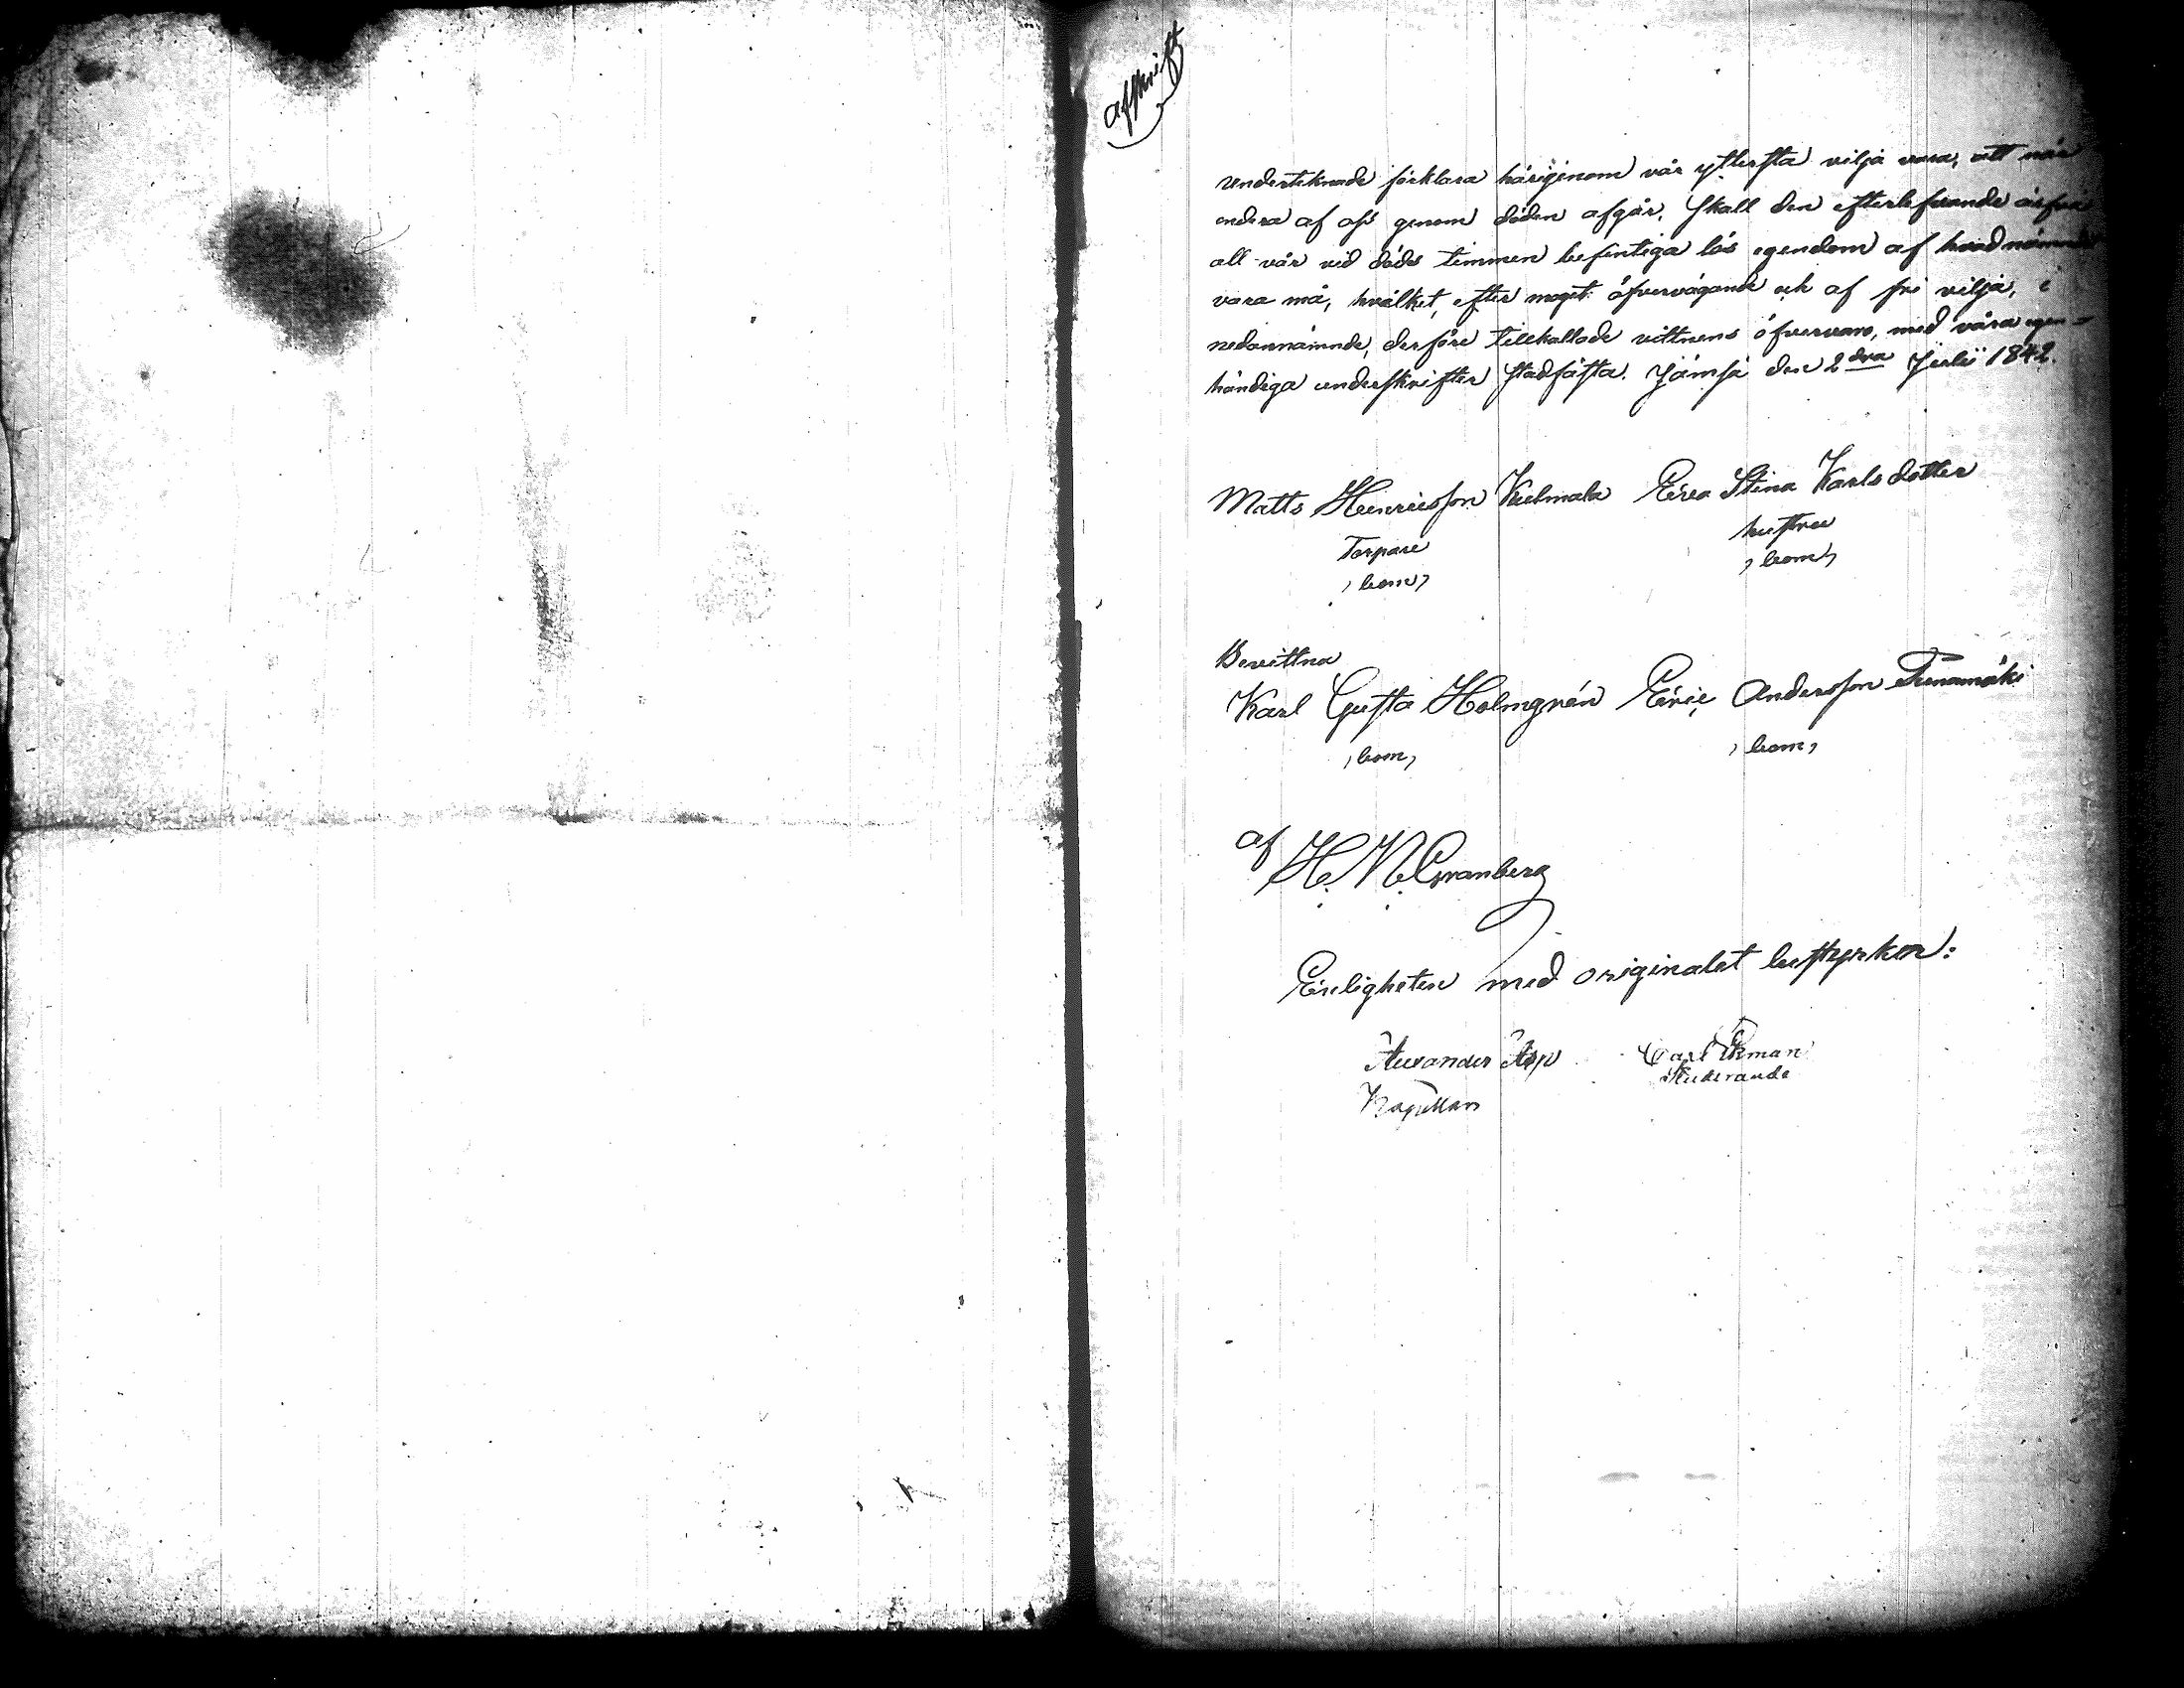 Afskrift
Underteknade förklara härigenom vår yttersta vilja vara, att när
endera af oss genom döden afgår, skall den efterlefvande ärfva
all vår vid döds timmen befintiga lös egendom af hvad nämnd
vara må, hvilket, efter moget öfvervägande och af fri vilja, i
nedannämnde, derföre tillkallade vittnens öfvervaro, med våra egen-
händiga underskrifter stadfästa. Jämsä den 2dra Julii 1842.
Matts Henricsson Kulmala Eva Stina Karlsdotter
Torpare hustru
, bom, , bom,
Bevittna
Karl Gusta Holmgrén Eric Andersson
, bom, , bom,
af H. N. Granberg
Enligheten med originalet bestyrker:
Alexander Asp Carl
Kapellan Studerande